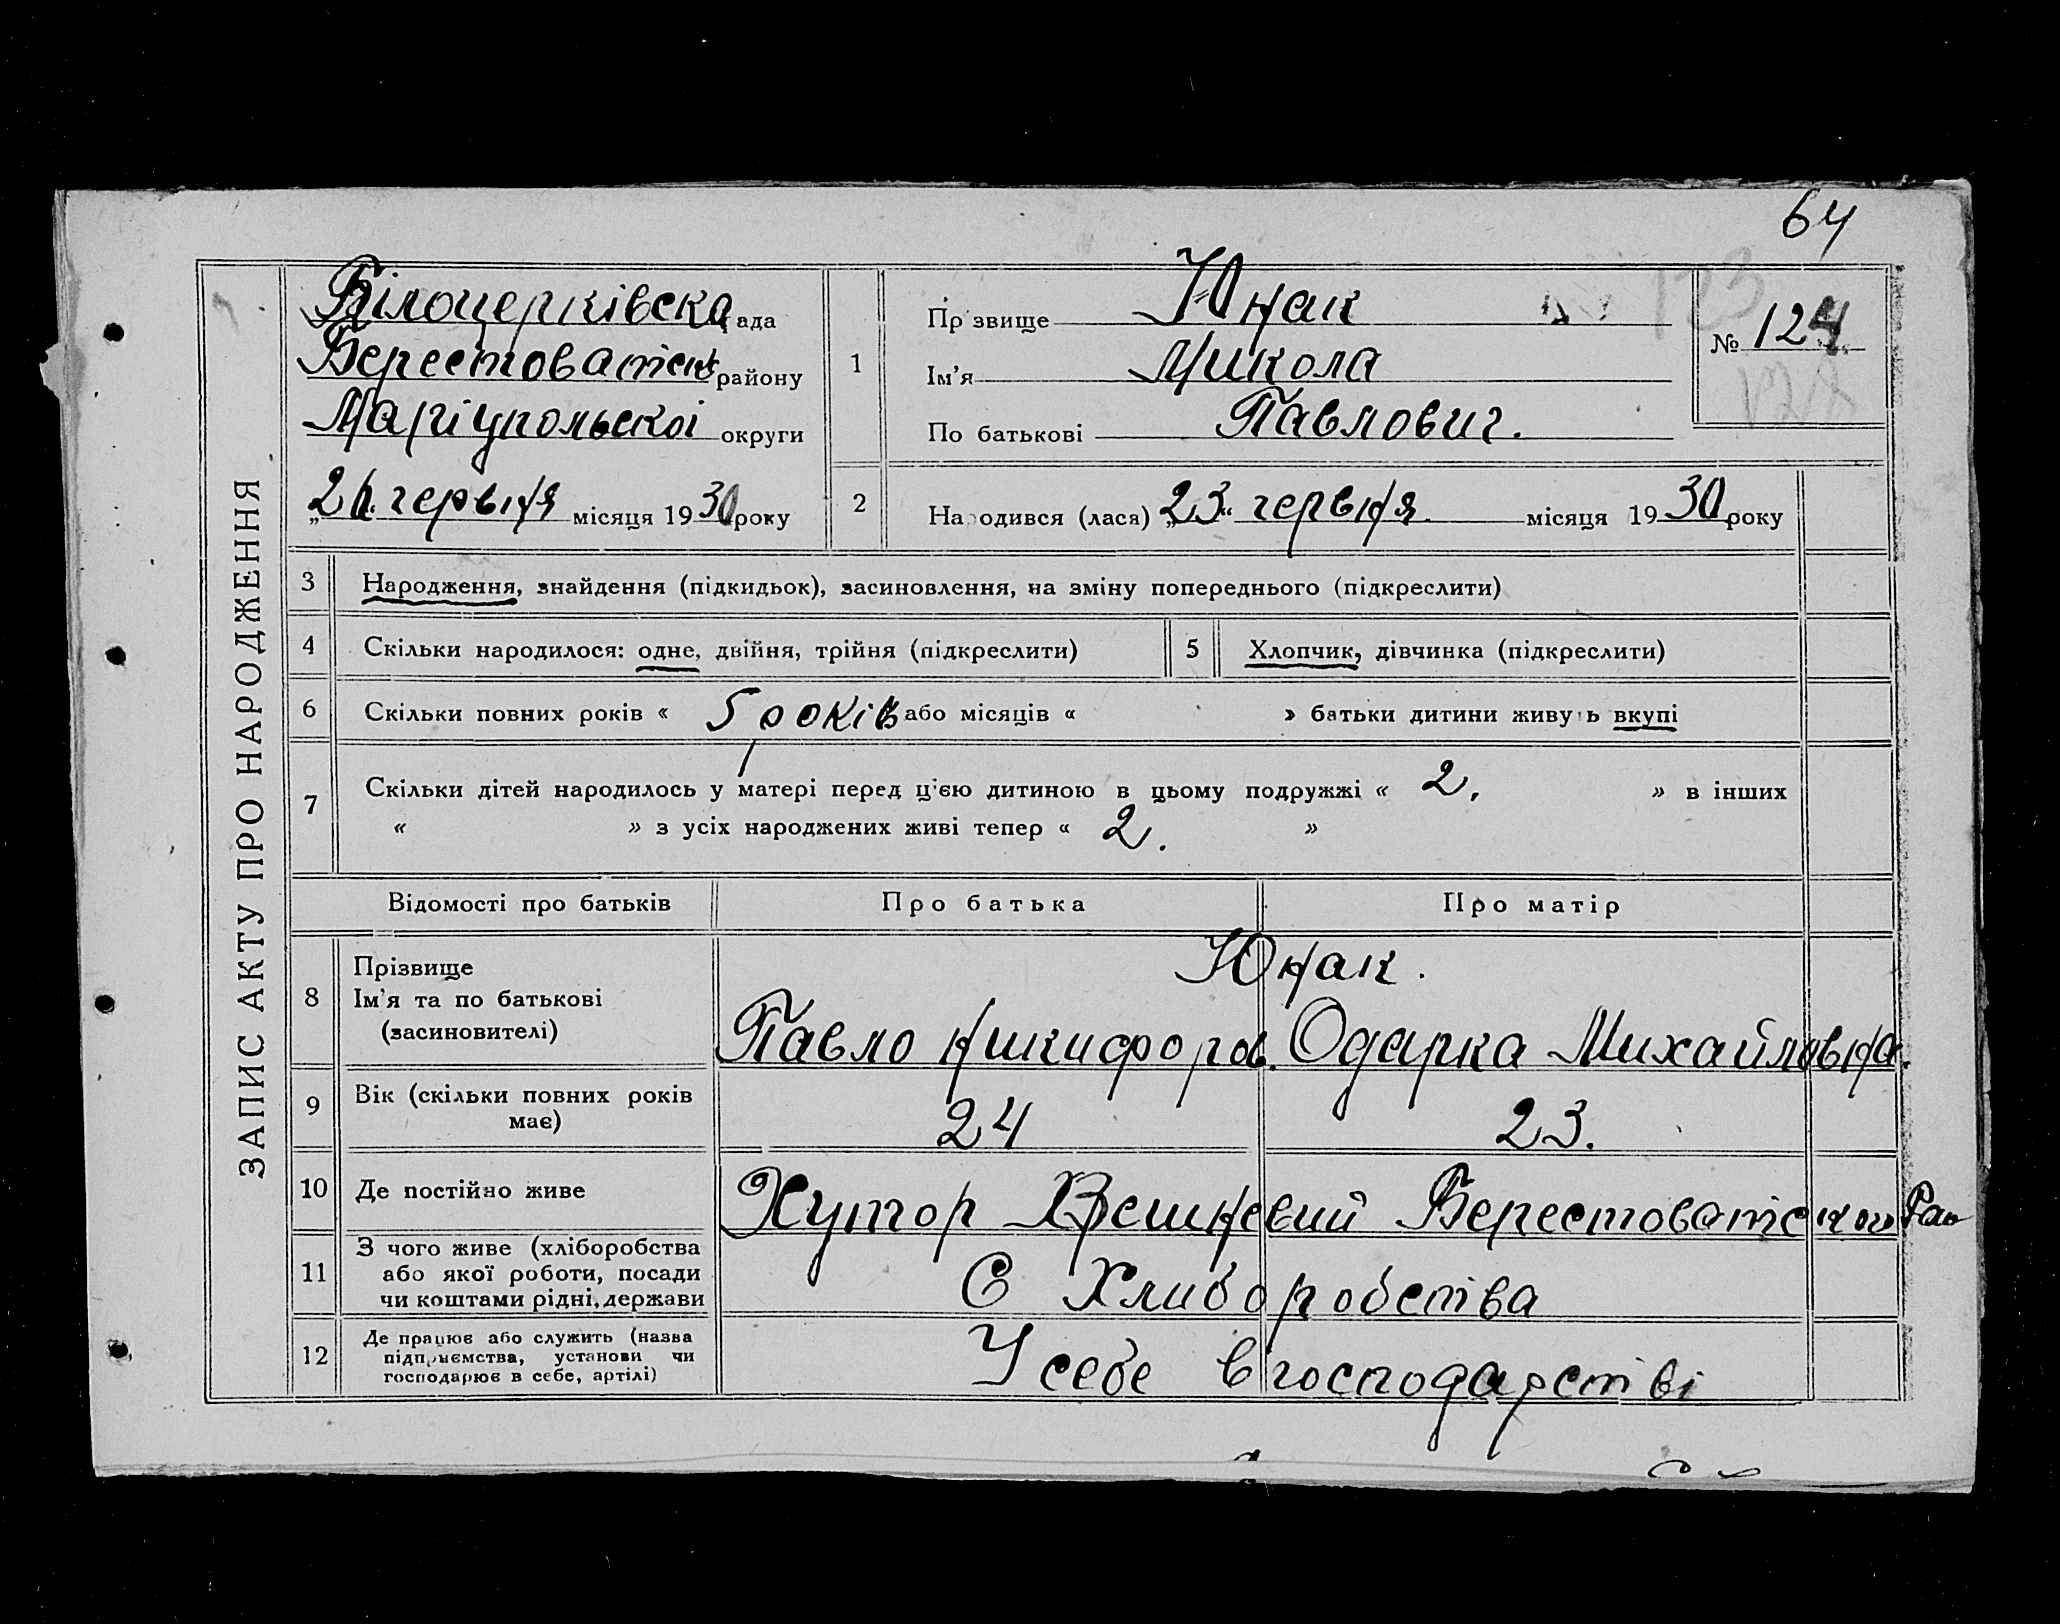 64
ЗАПИС АКТУ ПРО НАРОДЖЕННЯ
Білоцерківска рада
Берестоватськ району
Маріупольскоі округи
червня місяця 1930 року
1
Прізвище Юнак
Ім'я Микола
По батькові Павлович.
№ 124
123
2 Народився (лася) „23“ червня місяця 1930 року
3 Народження, знайдення (підкидьок), засиновлення, на зміну попереднього (підкреслити)
4 Скільки народилося: одне, двійня, трійня (підкреслити) 5 Хлопчик, дівчинка (підкреслити)
6 Скільки повних років « 5 років або місяців « » батьки дитини живуть вкупі
7 Скільки дітей народилось у матері перед ц'єю дитиною в цьому подружжі « 2. » в інших
« » з усіх народжених живі тепер « 2. »
Відомості про батьків Про батька Про матір
8 Прізвище
Ім'я та по батькові
(засиновителі)
Юнак.
Павло Никифоров. Одарка Михайловна.
9 Вік (скільки повних років
має)
24 23.
10 Де постійно живе Хутор Берестоватского Рай
11 З чого живе (хліборобства
або якої роботи, посади
чи коштами рідні, держави
С Хлиборобства
12 Де працює або служить (назва
підприємства, установи чи
господарює в себе, артілі)
У себе в господарстві